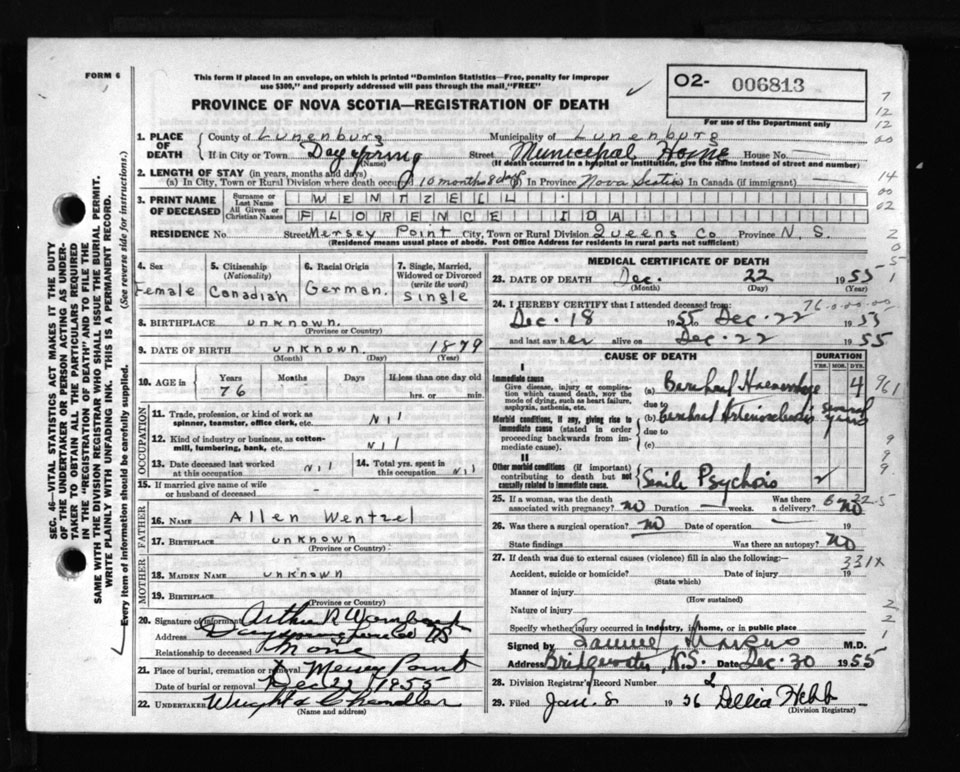 FORM 6
This form if placed in an envelope, on which is printed "Dominion Statistics—Free, penalty for improper
use $300," and properly addressed will pass through the mail "FREE"
PROVINCE OF NOVA SCOTIA—REGISTRATION OF DEATH
O2- 006813
For use of the Department only
SEC. 46—VITAL STATISTICS ACT MAKES IT THE DUTY
OF THE UNDERTAKER OR PERSON ACTING AS UNDER-
TAKER TO OBTAIN ALL THE PARTICULARS REQUIRED
IN THE "REGISTRATION OF DEATH" AND TO FILE THE
SAME WITH THE DIVISION REGISTRAR WHO SHALL ISSUE THE BURIAL PERMIT.
WRITE PLAINLY WITH UNFADING INK. THIS IS A PERMANENT RECORD.
Every item of information should be carefully supplied. (See reverse side for instructions.)
1. PLACE OF DEATH County of Lunenburg Municipality of Lunenburg
If in City or Town Dayspring (Name) Street Municipal Home House No.
(If death occurred in a hospital or institution, give the name instead of street and number)
2. LENGTH OF STAY (in years, months and days)
(a) In City, Town or Rural Division where death occurred 10 months 8 days In Province Nova Scotia In Canada (if immigrant)
3. PRINT NAME OF DECEASED Surname or Last Name WENTZELL
All Given or Christian Names FLORENCE IDA
RESIDENCE No. Street Mersey Point City, Town or Rural Division Queens Co Province N.S.
(Residence means usual place of abode. Post Office Address for residents in rural parts not sufficient)
4. Sex Female
5. Citizenship (Nationality) Canadian
6. Racial Origin German.
7. Single, Married, Widowed or Divorced (write the word) Single
8. BIRTHPLACE unknown.
(Province or Country)
9. DATE OF BIRTH unknown. 1879
(Month) (Day) (Year)
10. AGE in Years 76 Months Days If less than one day old hrs. or min.
OCCUPATION
11. Trade, profession, or kind of work as spinner, teamster, office clerk, etc. Nil
12. Kind of industry or business, as cotton-mill, lumbering, bank, etc. Nil
13. Date deceased last worked at this occupation Nil
14. Total yrs. spent in this occupation Nil
15. If married give name of wife or husband of deceased
FATHER
16. NAME Allen Wentzel
17. BIRTHPLACE unknown
(Province or Country)
MOTHER
18. MAIDEN NAME unknown
19. BIRTHPLACE
(Province or Country)
20. Signature of informant Arthur R
Address Dayspring Lun Co NS
Relationship to deceased None
21. Place of burial, cremation or removal Mersey Point
Date of burial or removal Dec 23 1955
22. UNDERTAKER Wright & Chandler
(Name and address)
MEDICAL CERTIFICATE OF DEATH
23. DATE OF DEATH Dec. 22 1955
(Month) (Day) (Year)
24. I HEREBY CERTIFY that I attended deceased from:
Dec. 18 1955 to Dec. 22 1955
and last saw her alive on Dec. 22 1955
CAUSE OF DEATH
DURATION
YRS. MOS. DYS.
I
Immediate cause
Give disease, injury or complication which caused death, not the mode of dying, such as heart failure, asphyxia, asthenia, etc.
(a) 4
due to
Morbid conditions, if any, giving rise to immediate cause (stated in order proceeding backwards from immediate cause).
(b) several years
due to
(c)
II
Other morbid conditions (if important) contributing to death but not causally related to immediate cause. Senile Psychosis 2
25. If a woman, was the death associated with pregnancy? NO Duration weeks. Was there a delivery? NO
26. Was there a surgical operation? NO Date of operation 19
State findings Was there an autopsy? NO
27. If death was due to external causes (violence) fill in also the following:— 331X
Accident, suicide or homicide? Date of injury 19
(State which)
Manner of injury
(How sustained)
Nature of injury
Specify whether injury occurred in industry, in home, or in public place
Signed by Samuel Marcus M.D.
Address Bridgewater, N.S. Date Dec. 30 1955
28. Division Registrar's Record Number 2
29. Filed Jan. 8 1956 Dellia Hebb
(Division Registrar)